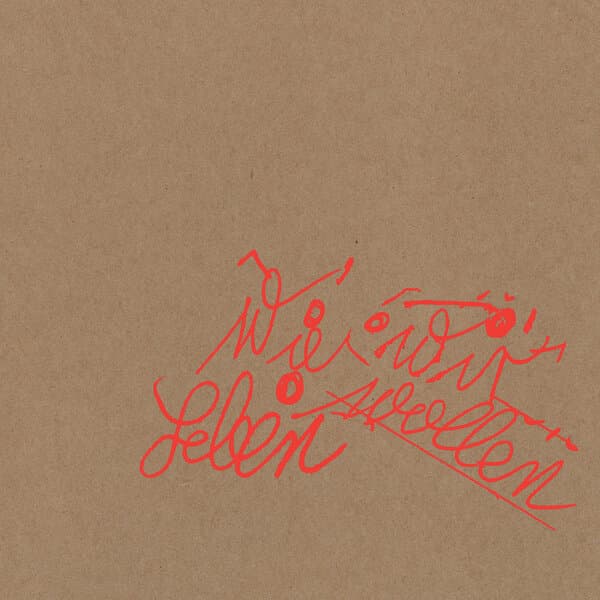 Wie wir
leben wollen